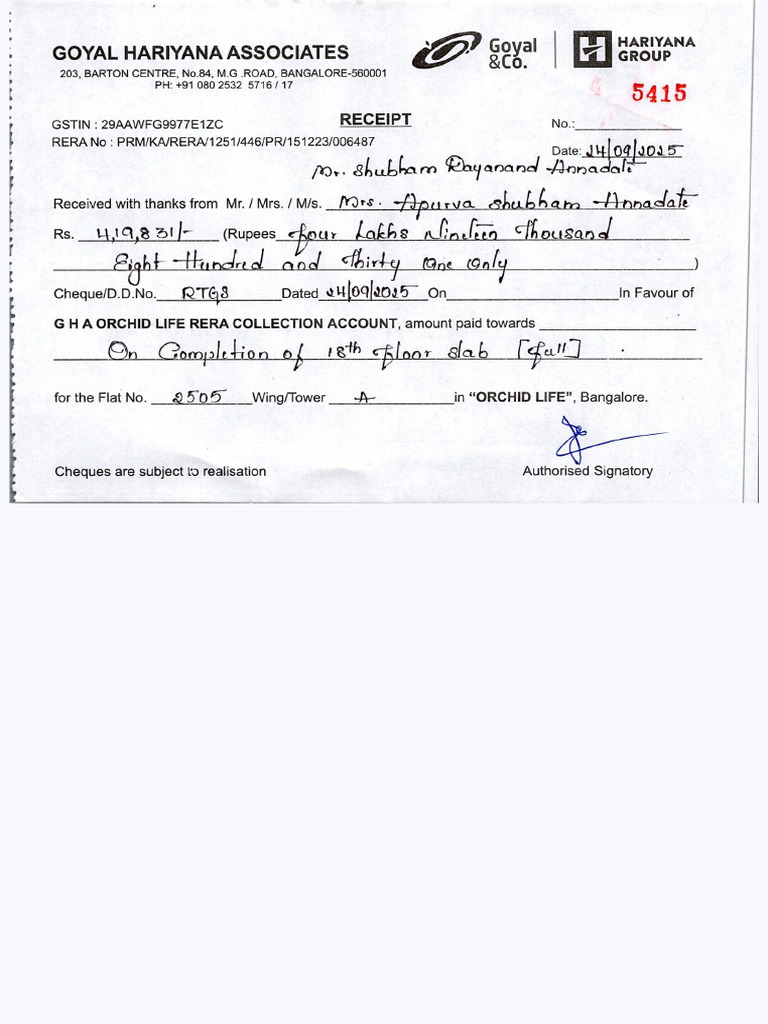 GOYAL HARIYANA ASSOCIATES
203, BARTON CENTRE, No.84, M.G .ROAD, BANGALORE-560001
PH: +91 080 2532 5716 / 17
Goyal &Co.
HARIYANA GROUP
5415
GSTIN : 29AAWFG9977E1ZC
RECEIPT
No.:
RERA No : PRM/KA/RERA/1251/446/PR/151223/006487
Date: 24/09/2025
Mr. Shubham Rayanand Annadate
Received with thanks from Mr. / Mrs. / M/s. Mrs. Apurva Shubham Annadate
Rs. 4,19,831/- (Rupees Four Lakhs Nineteen Thousand
Eight Hundred and Thirty One Only )
Cheque/D.D.No. RTGS Dated 24/09/2025 On In Favour of
G H A ORCHID LIFE RERA COLLECTION ACCOUNT, amount paid towards
On Completion of 18th Floor Slab [Full] .
for the Flat No. 2505 Wing/Tower A in “ORCHID LIFE”, Bangalore.
Cheques are subject to realisation
Authorised Signatory